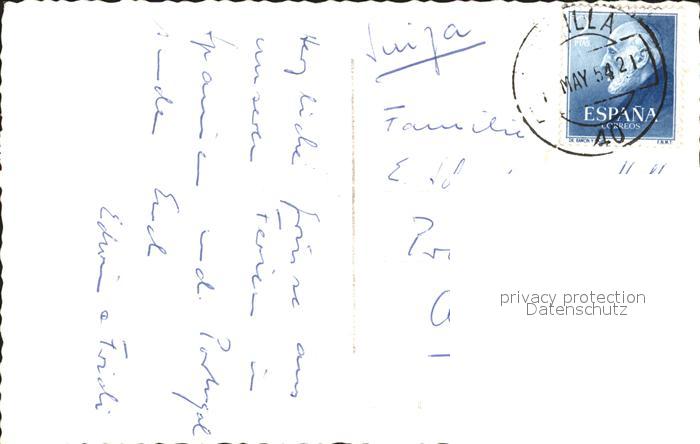 Herzliche Grüsse aus
unseren Ferien in
Spanien und Portugal
senden Euch
Edwin & Fridi
Suiza
Familie
E.
PTAS
ILLA
MAY 54 21
ESPAÑA
CORREOS
F.N.M.T.
privacy protection
Datenschutz